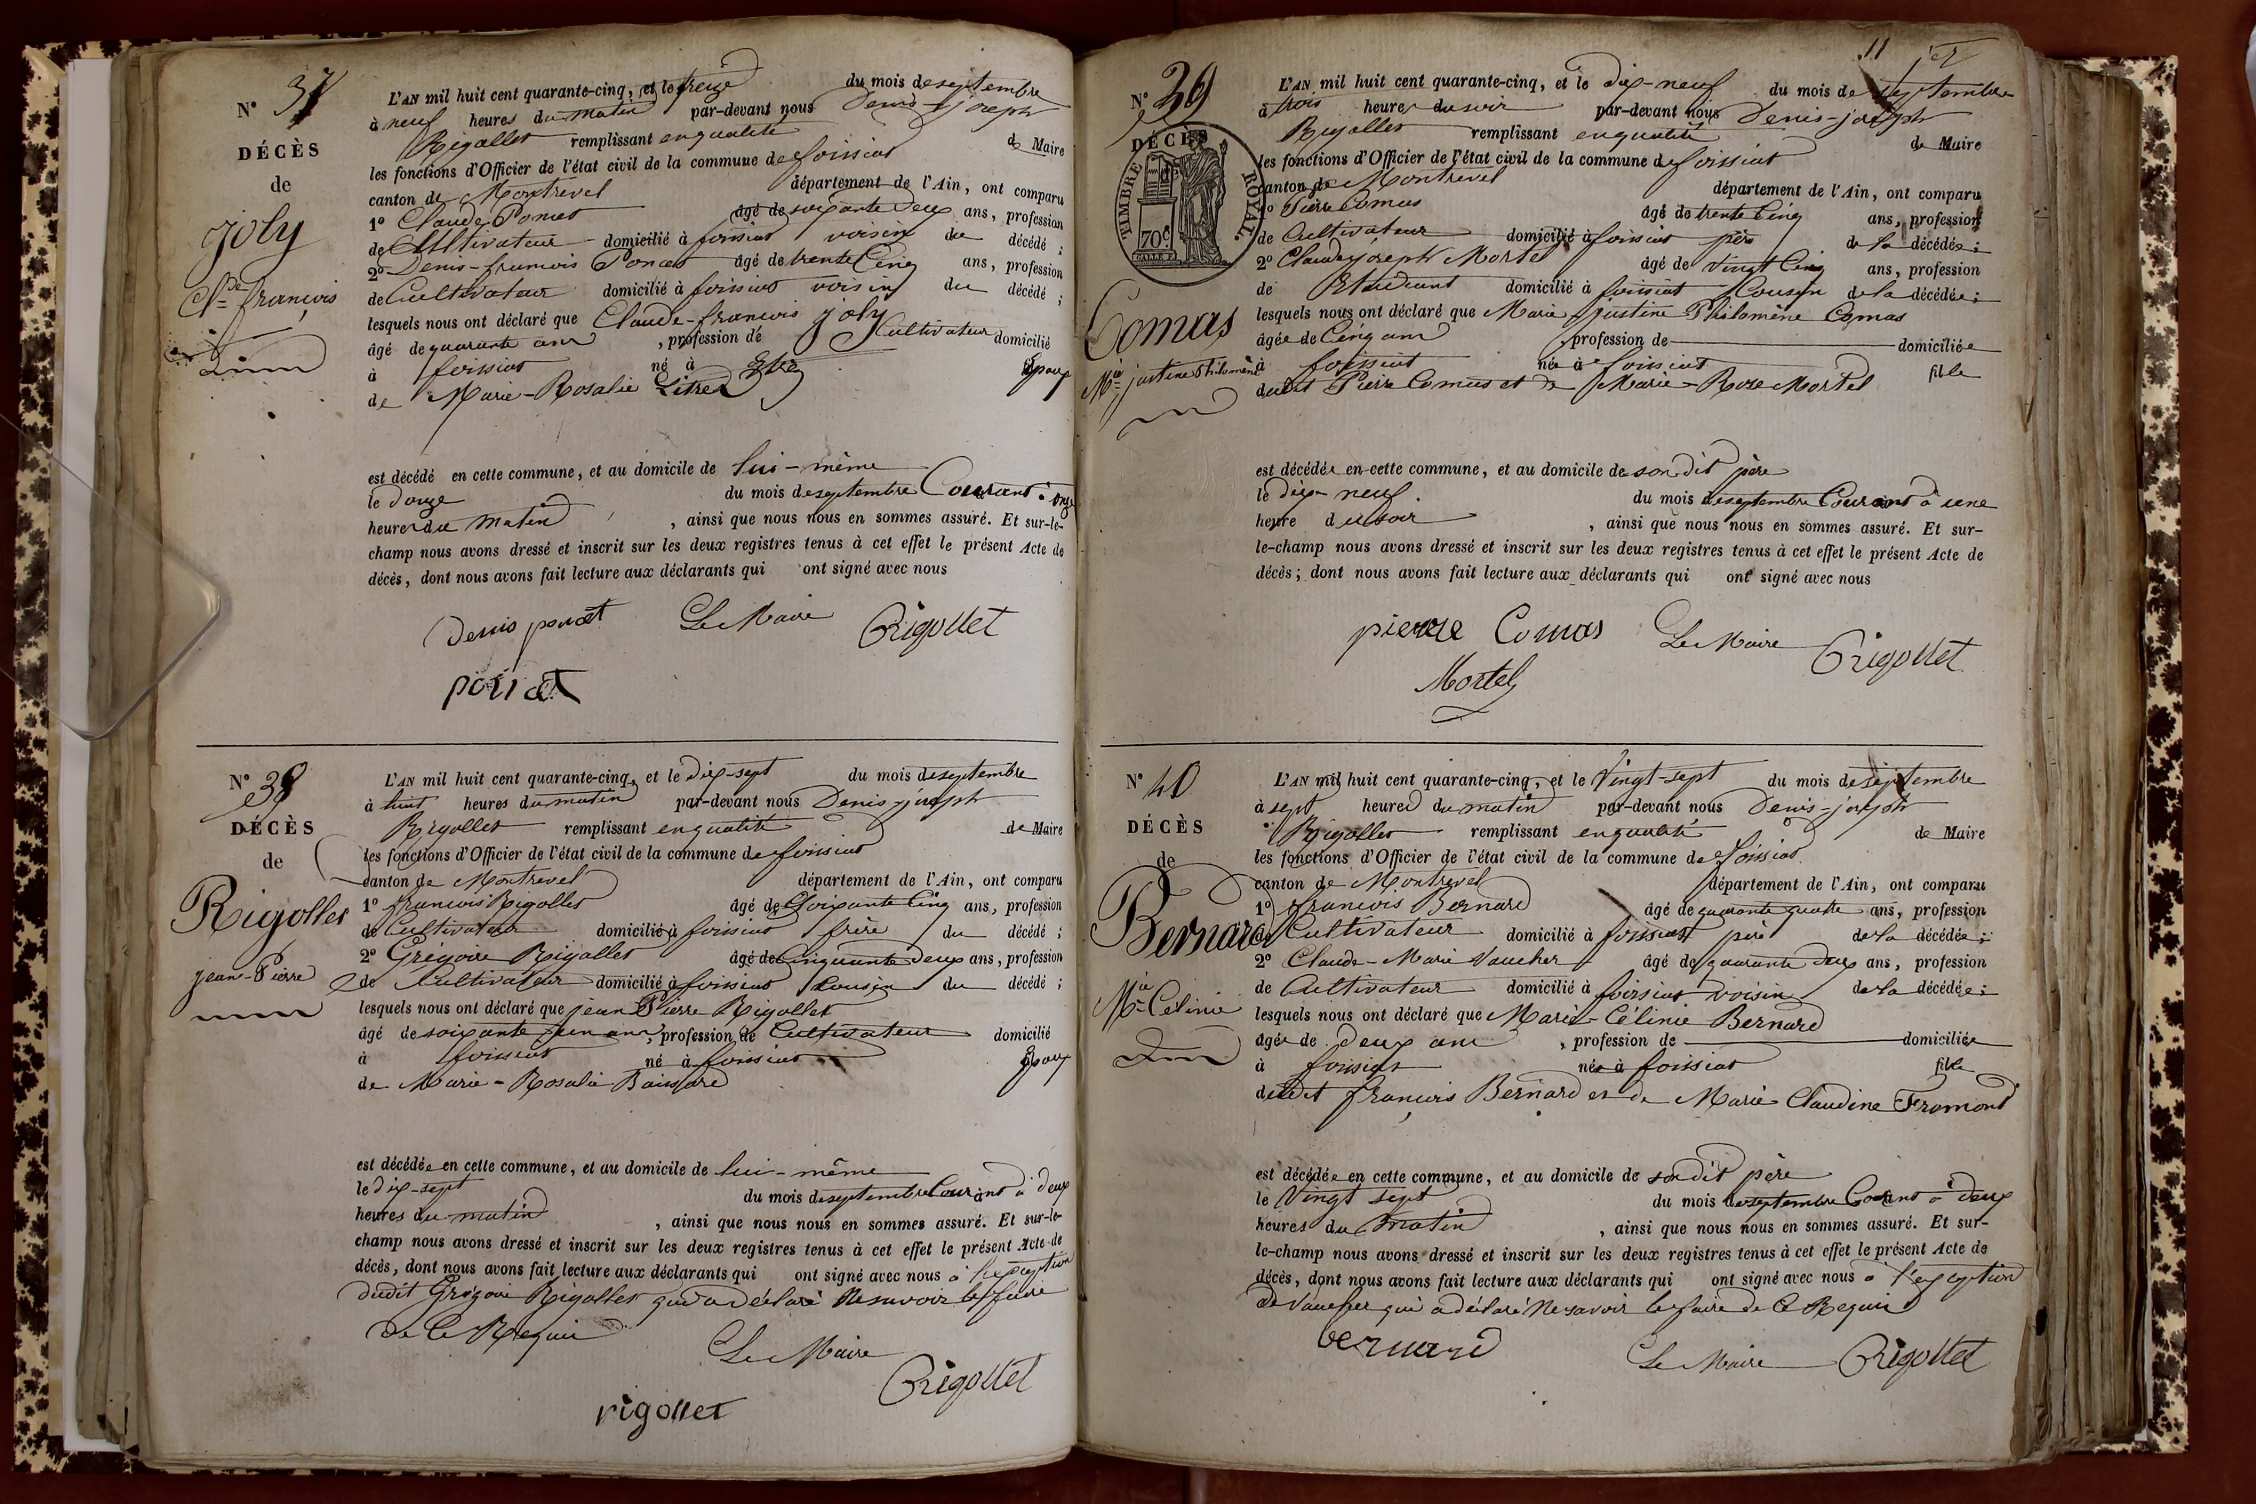 N° 37
DÉCÈS
de
joly
Cde françois
L'AN mil huit cent quarante-cinq, et le treize du mois de septembre
à neuf heures du matin par-devant nous Denis-joseph
Rigollet remplissant en qualité de Maire
les fonctions d'Officier de l'état civil de la commune de foissiat
canton de Montrevel département de l'Ain, ont comparu
1° Claude Poncet âgé de soixante deux ans, profession
de Cultivateur domicilié à foissiat voisin du décédé ;
2° Denis-françois Poncet âgé de trente Cinq ans, profession
de Cultivateur domicilié à foissiat voisin du décédé ;
lesquels nous ont déclaré que Claude-françois joly
âgé de quarante ans, profession de Cultivateur domicilié
à foissiat né à Epoux
de Marie-Rosalie
est décédé en cette commune, et au domicile de lui-même
le douze du mois de septembre Courant à onze
heures du matin, ainsi que nous nous en sommes assuré. Et sur-le-
champ nous avons dressé et inscrit sur les deux registres tenus à cet effet le présent Acte de
décès, dont nous avons fait lecture aux déclarants qui ont signé avec nous
Denis poncet Le Maire Rigollet
poncet
N° 38
DÉCÈS
de
Rigollet
jean-Pierre
L'AN mil huit cent quarante-cinq, et le dix-sept du mois de septembre
à huit heures du matin par-devant nous Denis-joseph
Rigollet remplissant en qualité de Maire
les fonctions d'Officier de l'état civil de la commune de foissiat
canton de Montrevel département de l'Ain, ont comparu
1° françois Rigollet âgé de Soixante Cinq ans, profession
de Cultivateur domicilié à foissiat frère du décédé ;
2° Grégoire Rigollet âgé de Cinquante deux ans, profession
de Cultivateur domicilié à foissiat Cousin du décédé ;
lesquels nous ont déclaré que jean Pierre Rigollet
âgé de soixante un ans, profession de Cultivateur domicilié
à foissiat né à foissiat Epoux
de Marie-Rosalie
est décédée en cette commune, et au domicile de lui-même
le dix-sept du mois de septembre Courant à deux
heures du matin, ainsi que nous nous en sommes assuré. Et sur-le-
champ nous avons dressé et inscrit sur les deux registres tenus à cet effet le présent Acte de
décès, dont nous avons fait lecture aux déclarants qui ont signé avec nous à l'exception
dudit Grégoire Rigollet qui a déclaré Ne savoir le faire
de Ce Requis
Le Maire
Rigollet
rigollet
11
N° 39
DÉCÈS
TIMBRE ROYAL.
70 c
Comas
Mie justine Philomène
L'AN mil huit cent quarante-cinq, et le dix-neuf du mois de septembre
à trois heures du soir par-devant nous Denis-joseph
Rigollet remplissant en qualité de Maire
les fonctions d'Officier de l'état civil de la commune de foissiat
canton de Montrevel département de l'Ain, ont comparu
1° Pierre Comas âgé de trente Cinq ans, profession
de Cultivateur domicilié à foissiat père de la décédée ;
2° Claude joseph Mortel âgé de vingt Cinq ans, profession
de Etudiant domicilié à foissiat Cousin de la décédée ;
lesquels nous ont déclaré que Marie justine Philomène Comas
âgée de Cinq ans, profession de domiciliée
à foissiat née à foissiat fille
dudit Pierre Comas et de Marie-Rose Mortel
est décédée en cette commune, et au domicile de son dit père
le dix-neuf du mois de septembre Courant à une
heure du soir, ainsi que nous nous en sommes assuré. Et sur-
le-champ nous avons dressé et inscrit sur les deux registres tenus à cet effet le présent Acte de
décès ; dont nous avons fait lecture aux déclarants qui ont signé avec nous
pierre Comas Le Maire Rigollet
Mortel
N° 40
DÉCÈS
de
Bernard
Mie Célinie
L'AN mil huit cent quarante-cinq, et le Vingt-sept du mois de septembre
à sept heures du matin par-devant nous Denis-joseph
Rigollet remplissant en qualité de Maire
les fonctions d'Officier de l'état civil de la commune de foissiat
canton de Montrevel département de l'Ain, ont comparu
1° françois Bernard âgé de quarante quatre ans, profession
de Cultivateur domicilié à foissiat père de la décédée ;
2° Claude-Marie Vaucher âgé de quarante deux ans, profession
de Cultivateur domicilié à foissiat voisin de la décédée ;
lesquels nous ont déclaré que Marie-Célinie Bernard
âgée de deux ans, profession de domiciliée
à foissiat née à foissiat fille
dudit françois Bernard et de Marie Claudine Fromont
est décédée en cette commune, et au domicile de son dit père
le Vingt sept du mois de septembre Courant à deux
heures du matin, ainsi que nous nous en sommes assuré. Et sur-
le-champ nous avons dressé et inscrit sur les deux registres tenus à cet effet le présent Acte de
décès, dont nous avons fait lecture aux déclarants qui ont signé avec nous à l'exception
de Vaucher qui a déclaré Ne savoir le faire de Ce Requis
bernard
Le Maire Rigollet